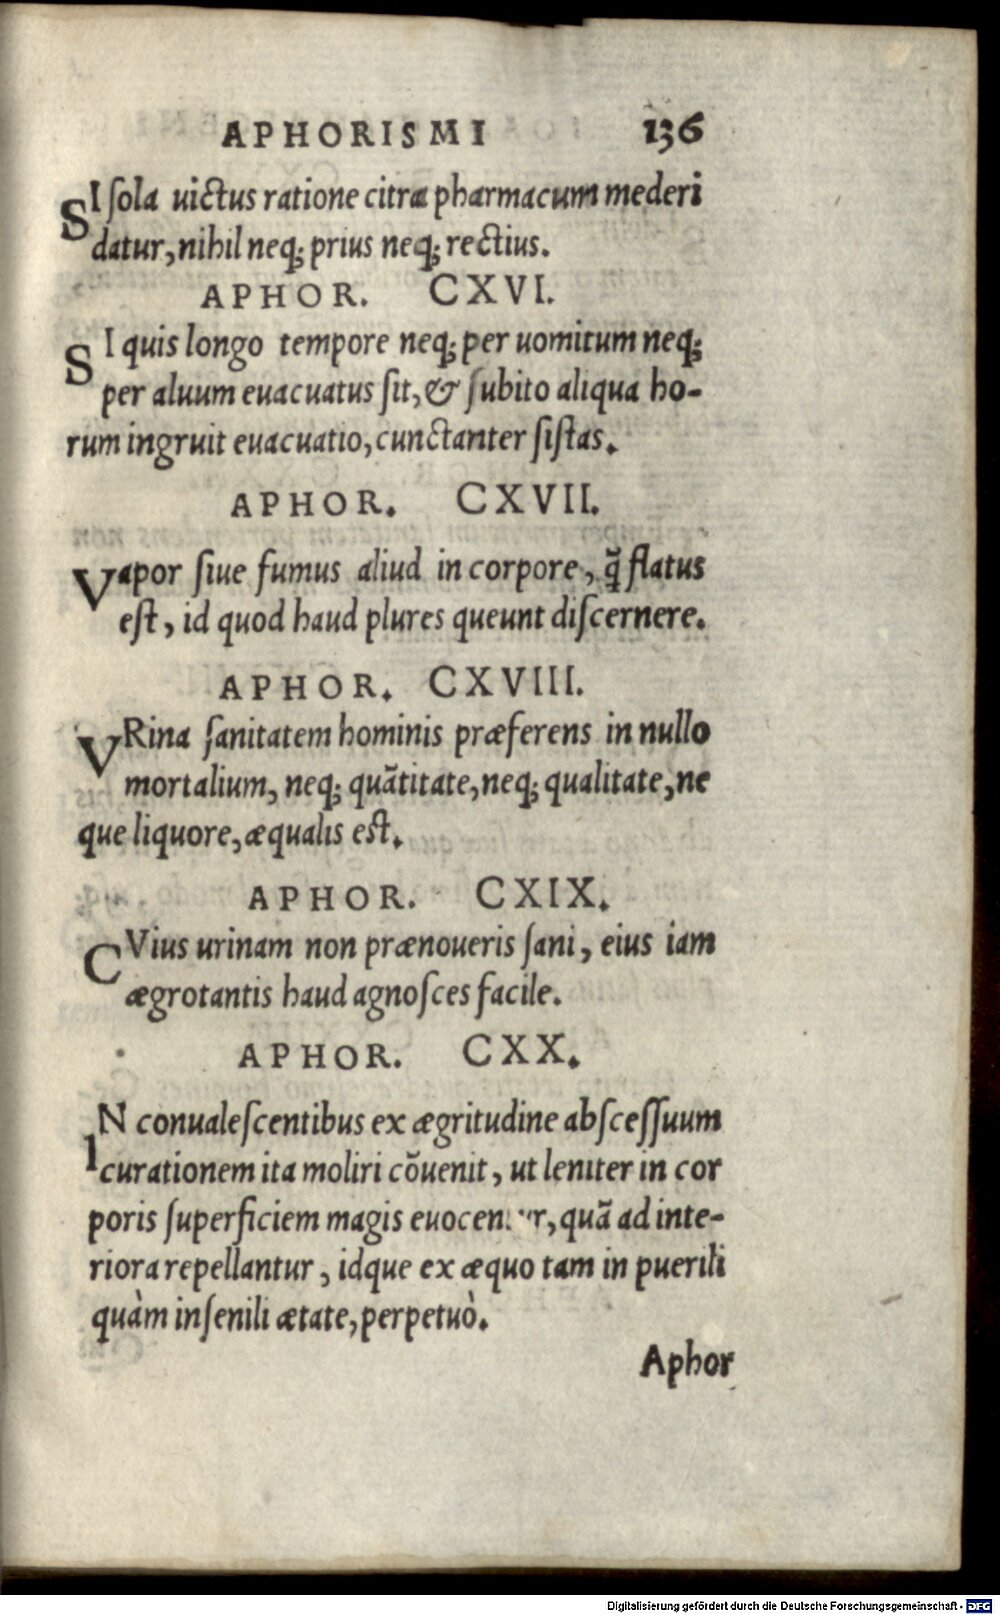 APHORISMI 136
SI sola uictus ratione citra pharmacum mederi
datur, nihil neq; prius neq; rectius.
APHOR. CXVI.
SI quis longo tempore neq; per uomitum neq;
per aluum euacuatus sit, & subito aliqua ho-
rum ingruit euacuatio, cunctanter sistas.
APHOR. CXVII.
Vapor siue fumus aliud in corpore, q̃ flatus
est, id quod haud plures queunt discernere.
APHOR. CXVIII.
VRina sanitatem hominis præferens in nullo
mortalium, neq; quãtitate, neq; qualitate, ne
que liquore, æqualis est.
APHOR. CXIX.
CVius urinam non prænoueris sani, eius iam
ægrotantis haud agnosces facile.
APHOR. CXX.
IN conualescentibus ex ægritudine abscessuum
curationem ita moliri cõuenit, ut leniter in cor
poris superficiem magis euocentur, quã ad inte-
riora repellantur, idque ex æquo tam in puerili
quàm in senili ætate, perpetuò.
Aphor
Digitalisierung gefördert durch die Deutsche Forschungsgemeinschaft - DFG